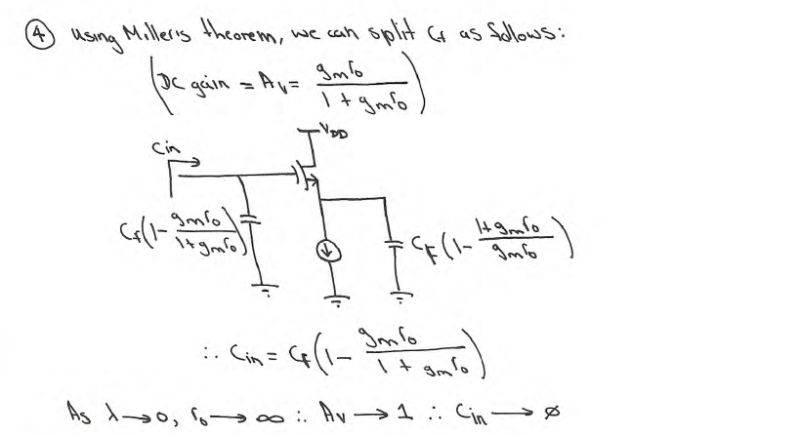 ④ using Miller's theorem, we can split Cf as follows:
(DC gain = Av = gmro / 1 + gmro)
VDD
Cin
Cf(1- gmro / 1+gmro)
CF(1- 1+gmro / gmro)
∴ Cin = Cf(1- gmro / 1 + gmro)
As λ→0, ro→∞ ∴ Av→1 ∴ Cin→ø